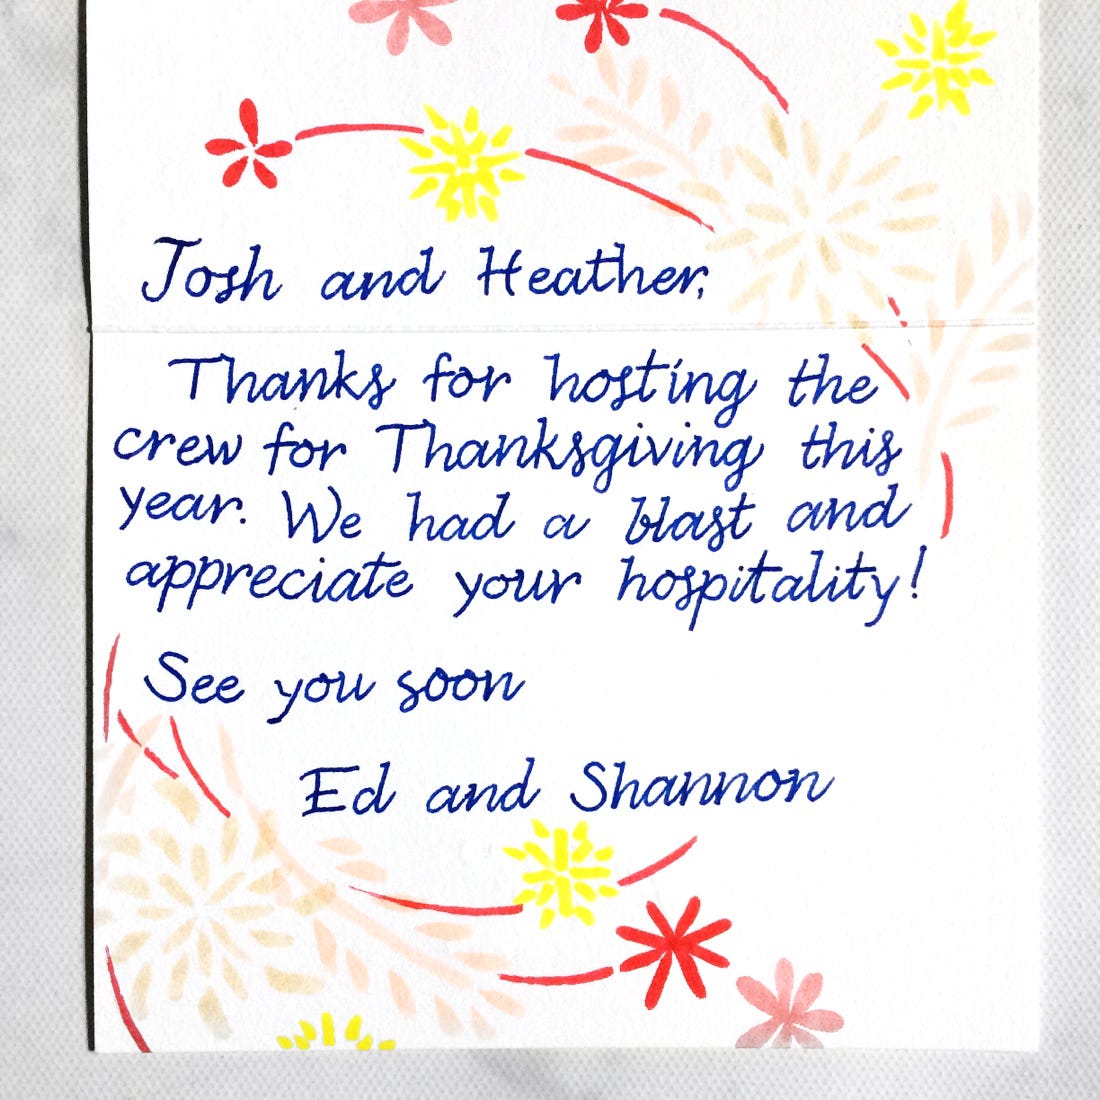 Josh and Heather,
Thanks for hosting the
crew for Thanksgiving this
year. We had a blast and
appreciate your hospitality!
See you soon
Ed and Shannon